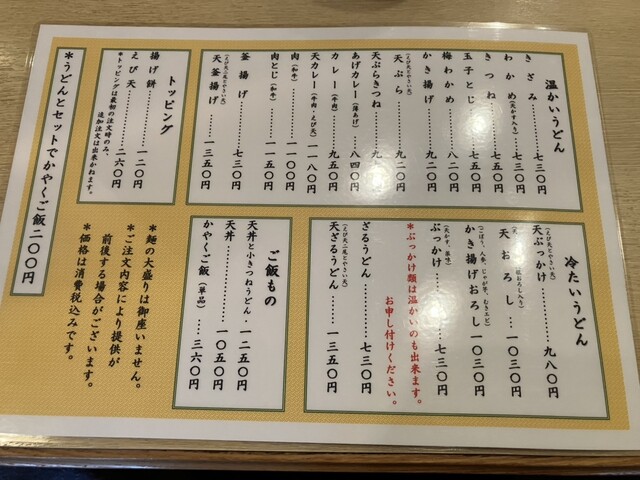 温かいうどん
きざみ……七三〇円
わかめ(天かす入り)……七三〇円
きつね……七五〇円
玉子とじ……七五〇円
梅わかめ……八二〇円
かき揚げ……九二〇円
(えび天とやさい天)
天ぷら……九二〇円
天ぷらきつね……九
あげカレー(薄あげ)……八四〇円
カレー(牛肉)……九五〇円
天カレー(牛肉・えび天)……一一八〇円
肉とじ(和牛)……一一〇〇円
肉(和牛)……一一〇〇円
釜揚げ……七三〇円
(えび天二尾とやさい天)
天釜揚げ……一三五〇円
トッピング
揚げ餅……一二〇円
えび天……二六〇円
*トッピングは最初の注文時のみ、
追加注文は出来かねます。
*うどんとセットでかやくご飯二〇〇円
冷たいうどん
(えび天とやさい天)
天ぶっかけ……九八〇円
天おろし……一〇三〇円
(ごぼう、人参、じゃが芋、むきエビ)
かき揚げおろし一〇三〇円
(天かす、薬味)
ぶっかけ……七三〇円
*ぶっかけ類は温かいのも出来ます。
お申し付けください。
ざるうどん……七三〇円
(えび天二尾とやさい天)
天ざるうどん……一三五〇円
ご飯もの
天丼と小きつねうどん・一二五〇円
天丼……一〇五〇円
かやくご飯(単品)…三六〇円
*麺の大盛りは御座いません。
*ご注文内容により提供が
前後する場合がございます。
*価格は消費税込みです。